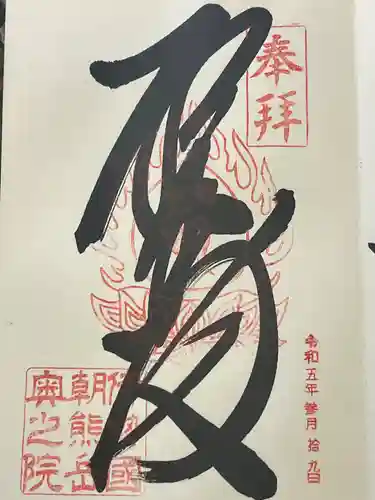 奉拝
令和五年 叁月 拾九日
伊勢國
朝熊岳
奥之院